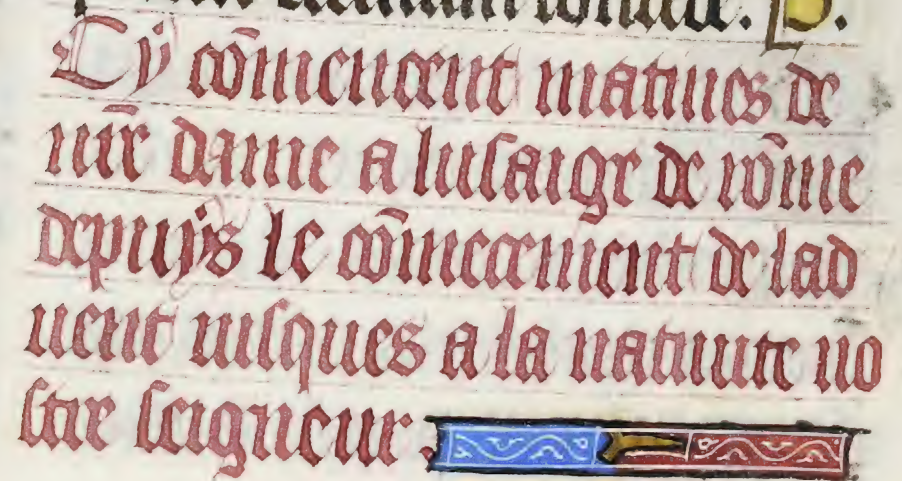 Cy cōmencent matines de
nr̄e dame a lusaige de rōme
depuys le cōmencement de lad
uent iusques a la natiuite no
stre seigneur.